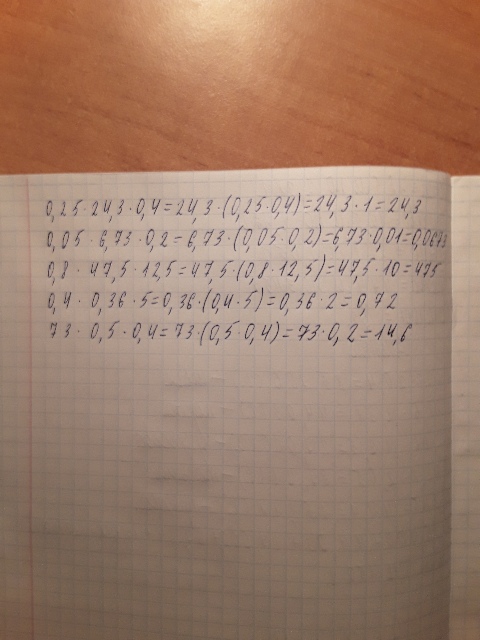 0,25·24,3·0,4=24,3·(0,25·0,4)=24,3·1=24,3
0,05·6,73·0,2=6,73·(0,05·0,2)=6,73·0,01=0,0673
0,8·47,5·12,5=47,5·(0,8·12,5)=47,5·10=475
0,4·0,36·5=0,36·(0,4·5)=0,36·2=0,72
73·0,5·0,4=73·(0,5·0,4)=73·0,2=14,6